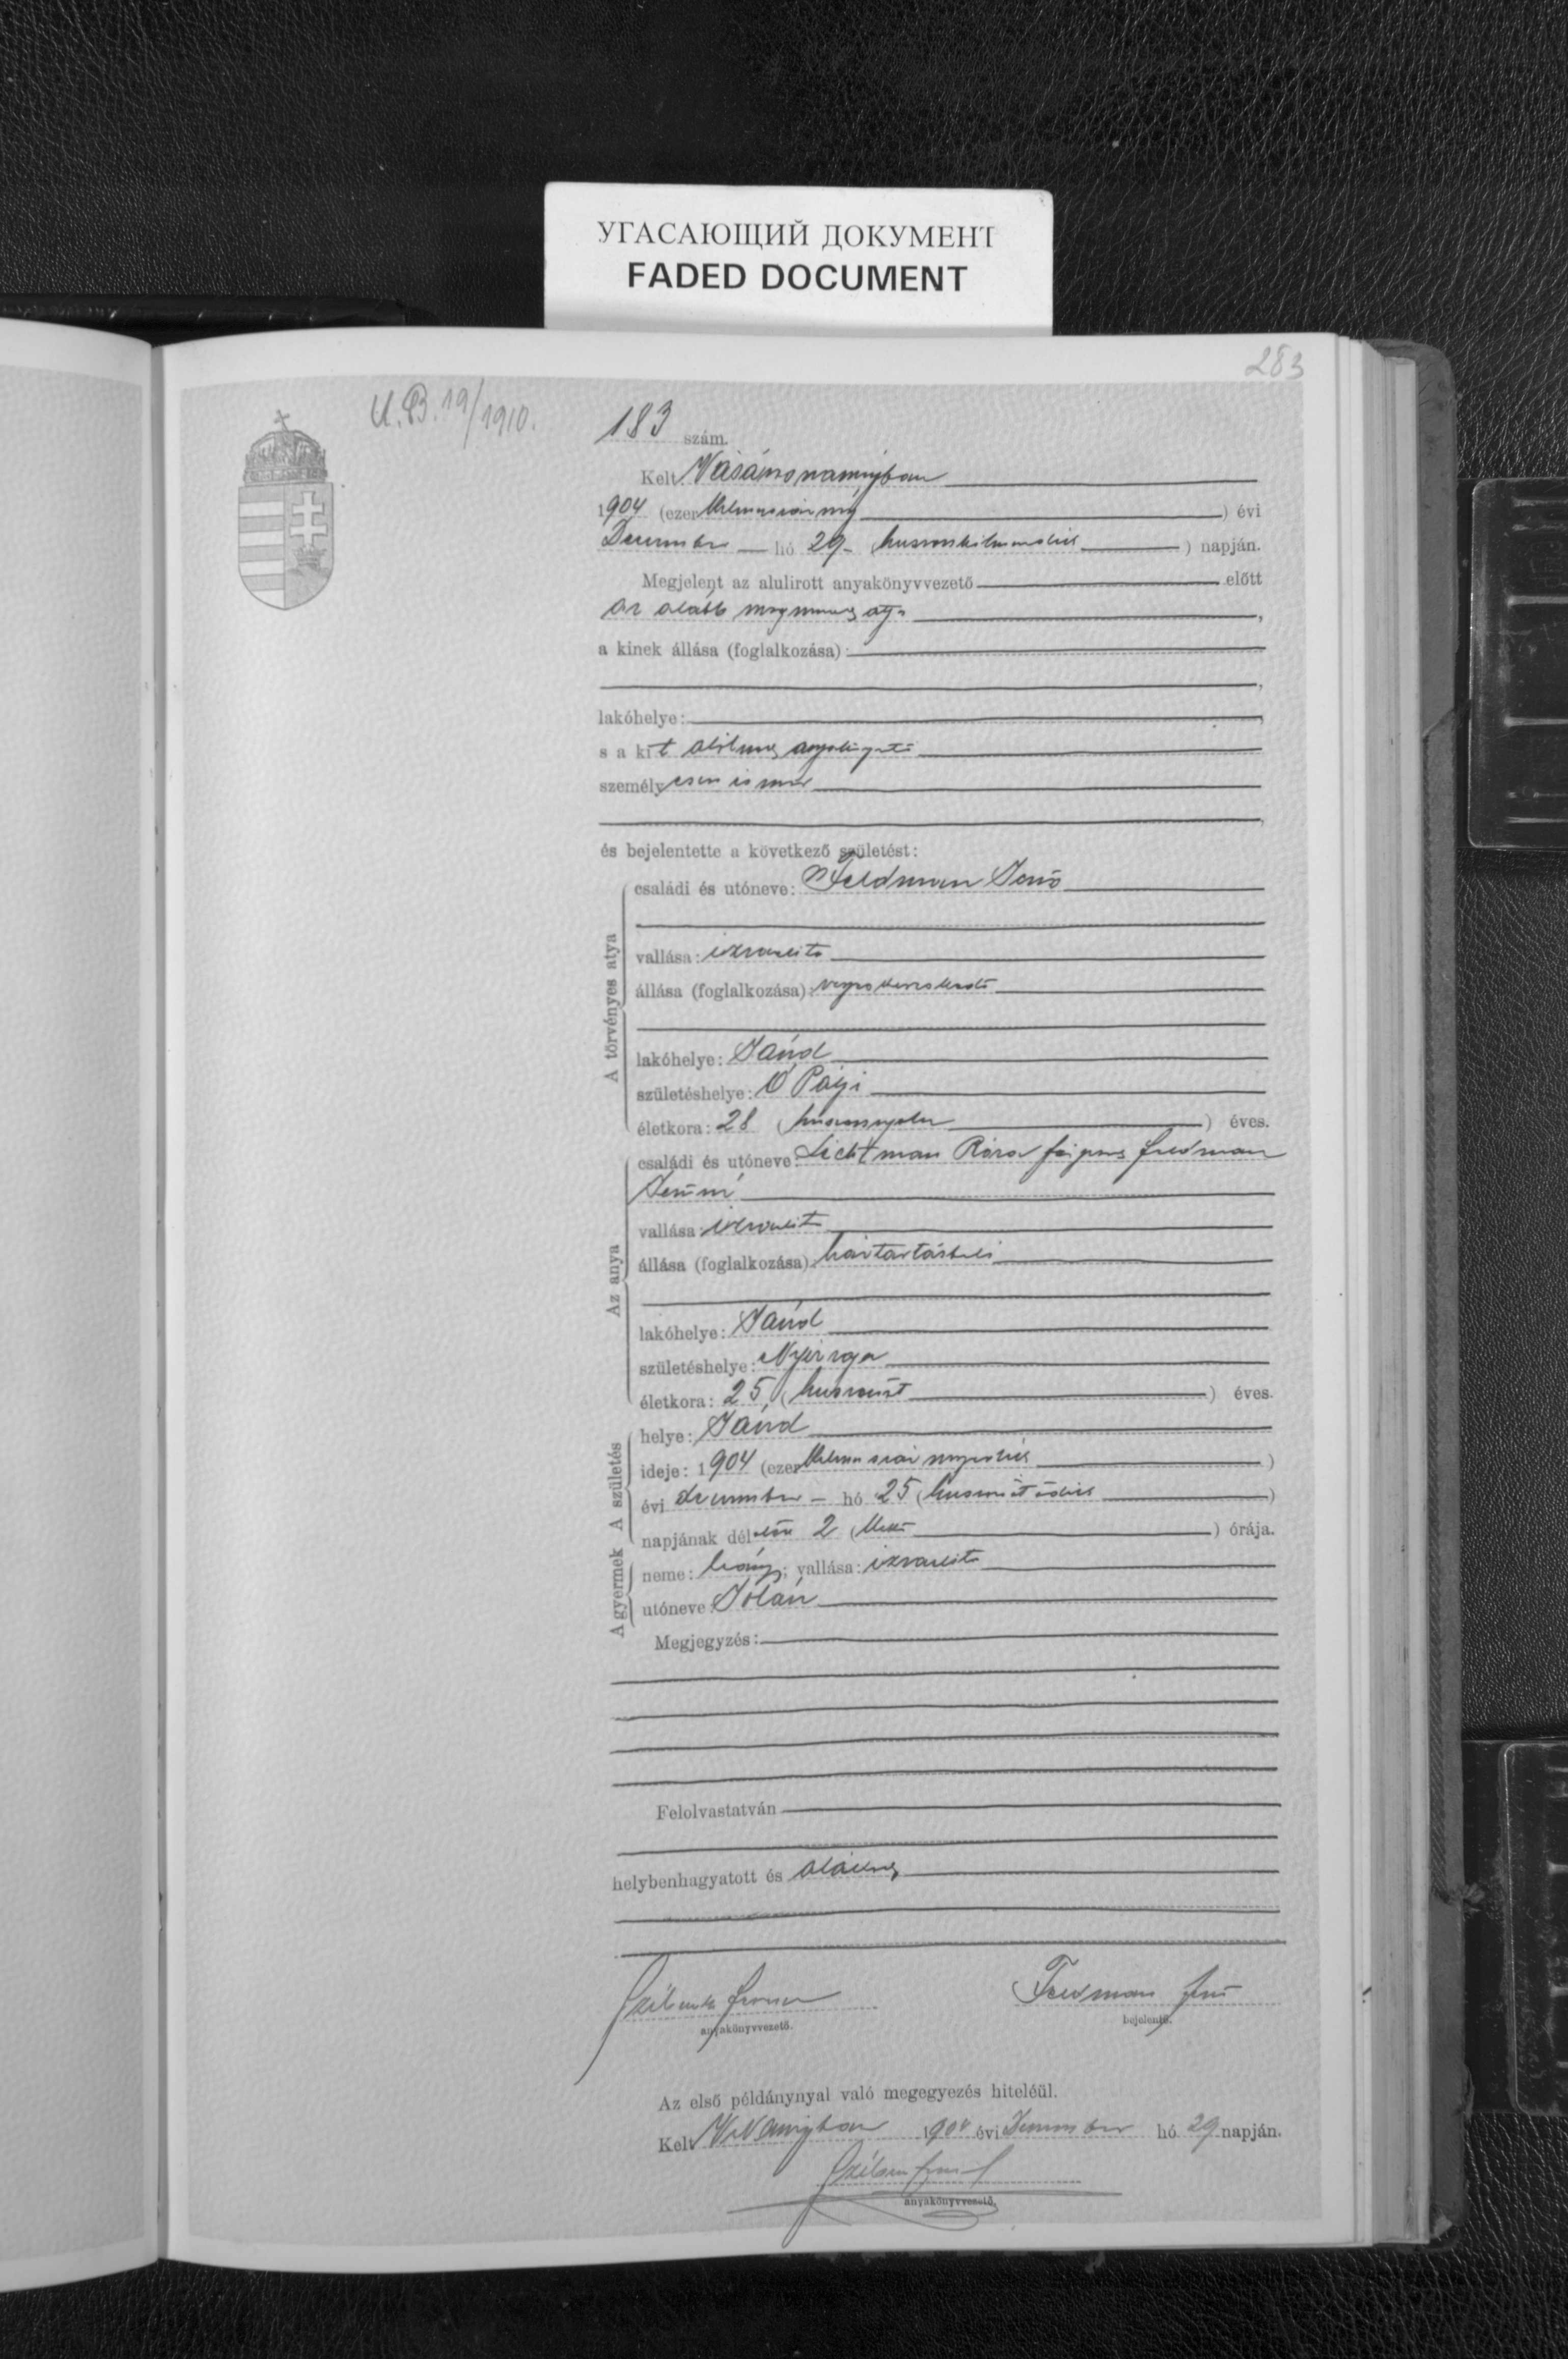 УГАСАЮЩИЙ ДОКУМЕНТ
FADED DOCUMENT
283
U.B. 19/1910.
183 szám.
Kelt Vásárosnaményban
1904 (ezerkilencszáznégy) évi
December hó 29. (huszonkilencedik) napján.
Megjelent az alulirott anyakönyvvezető előtt
az alább megnevezett atya,
a kinek állása (foglalkozása):
lakóhelye:
s a kit alólirott anyakönyvvezető
személyesen ismer
és bejelentette a következő születést:
A törvényes atya
családi és utóneve: Feldman Jenő
vallása: izraelita
állása (foglalkozása):
lakóhelye: Jánd
születéshelye: Ó Pályi
életkora: 28 (huszonnyolc) éves.
Az anya
családi és utóneve: Lichtman Róza férjezett Feldman
Jenőné
vallása: izraelita
állása (foglalkozása): háztartásbeli
lakóhelye: Jánd
születéshelye:
életkora: 25 (huszonöt) éves.
A születés
helye: Jánd
ideje: 1904 (ezerkilencszáznegyedik)
évi december hó 25 (huszonötödik)
napjának délelőtt 2 (kettő) órája.
A gyermek
neme: leány; vallása: izraelita
utóneve: Jolán
Megjegyzés:
Felolvastatván
helybenhagyatott és aláíratott
anyakönyvvezető.
Feldman Jenő
bejelentő.
Az első példánynyal való megegyezés hiteléül.
Kelt V.Naményban 1904 évi December hó 29 napján.
anyakönyvvezető.